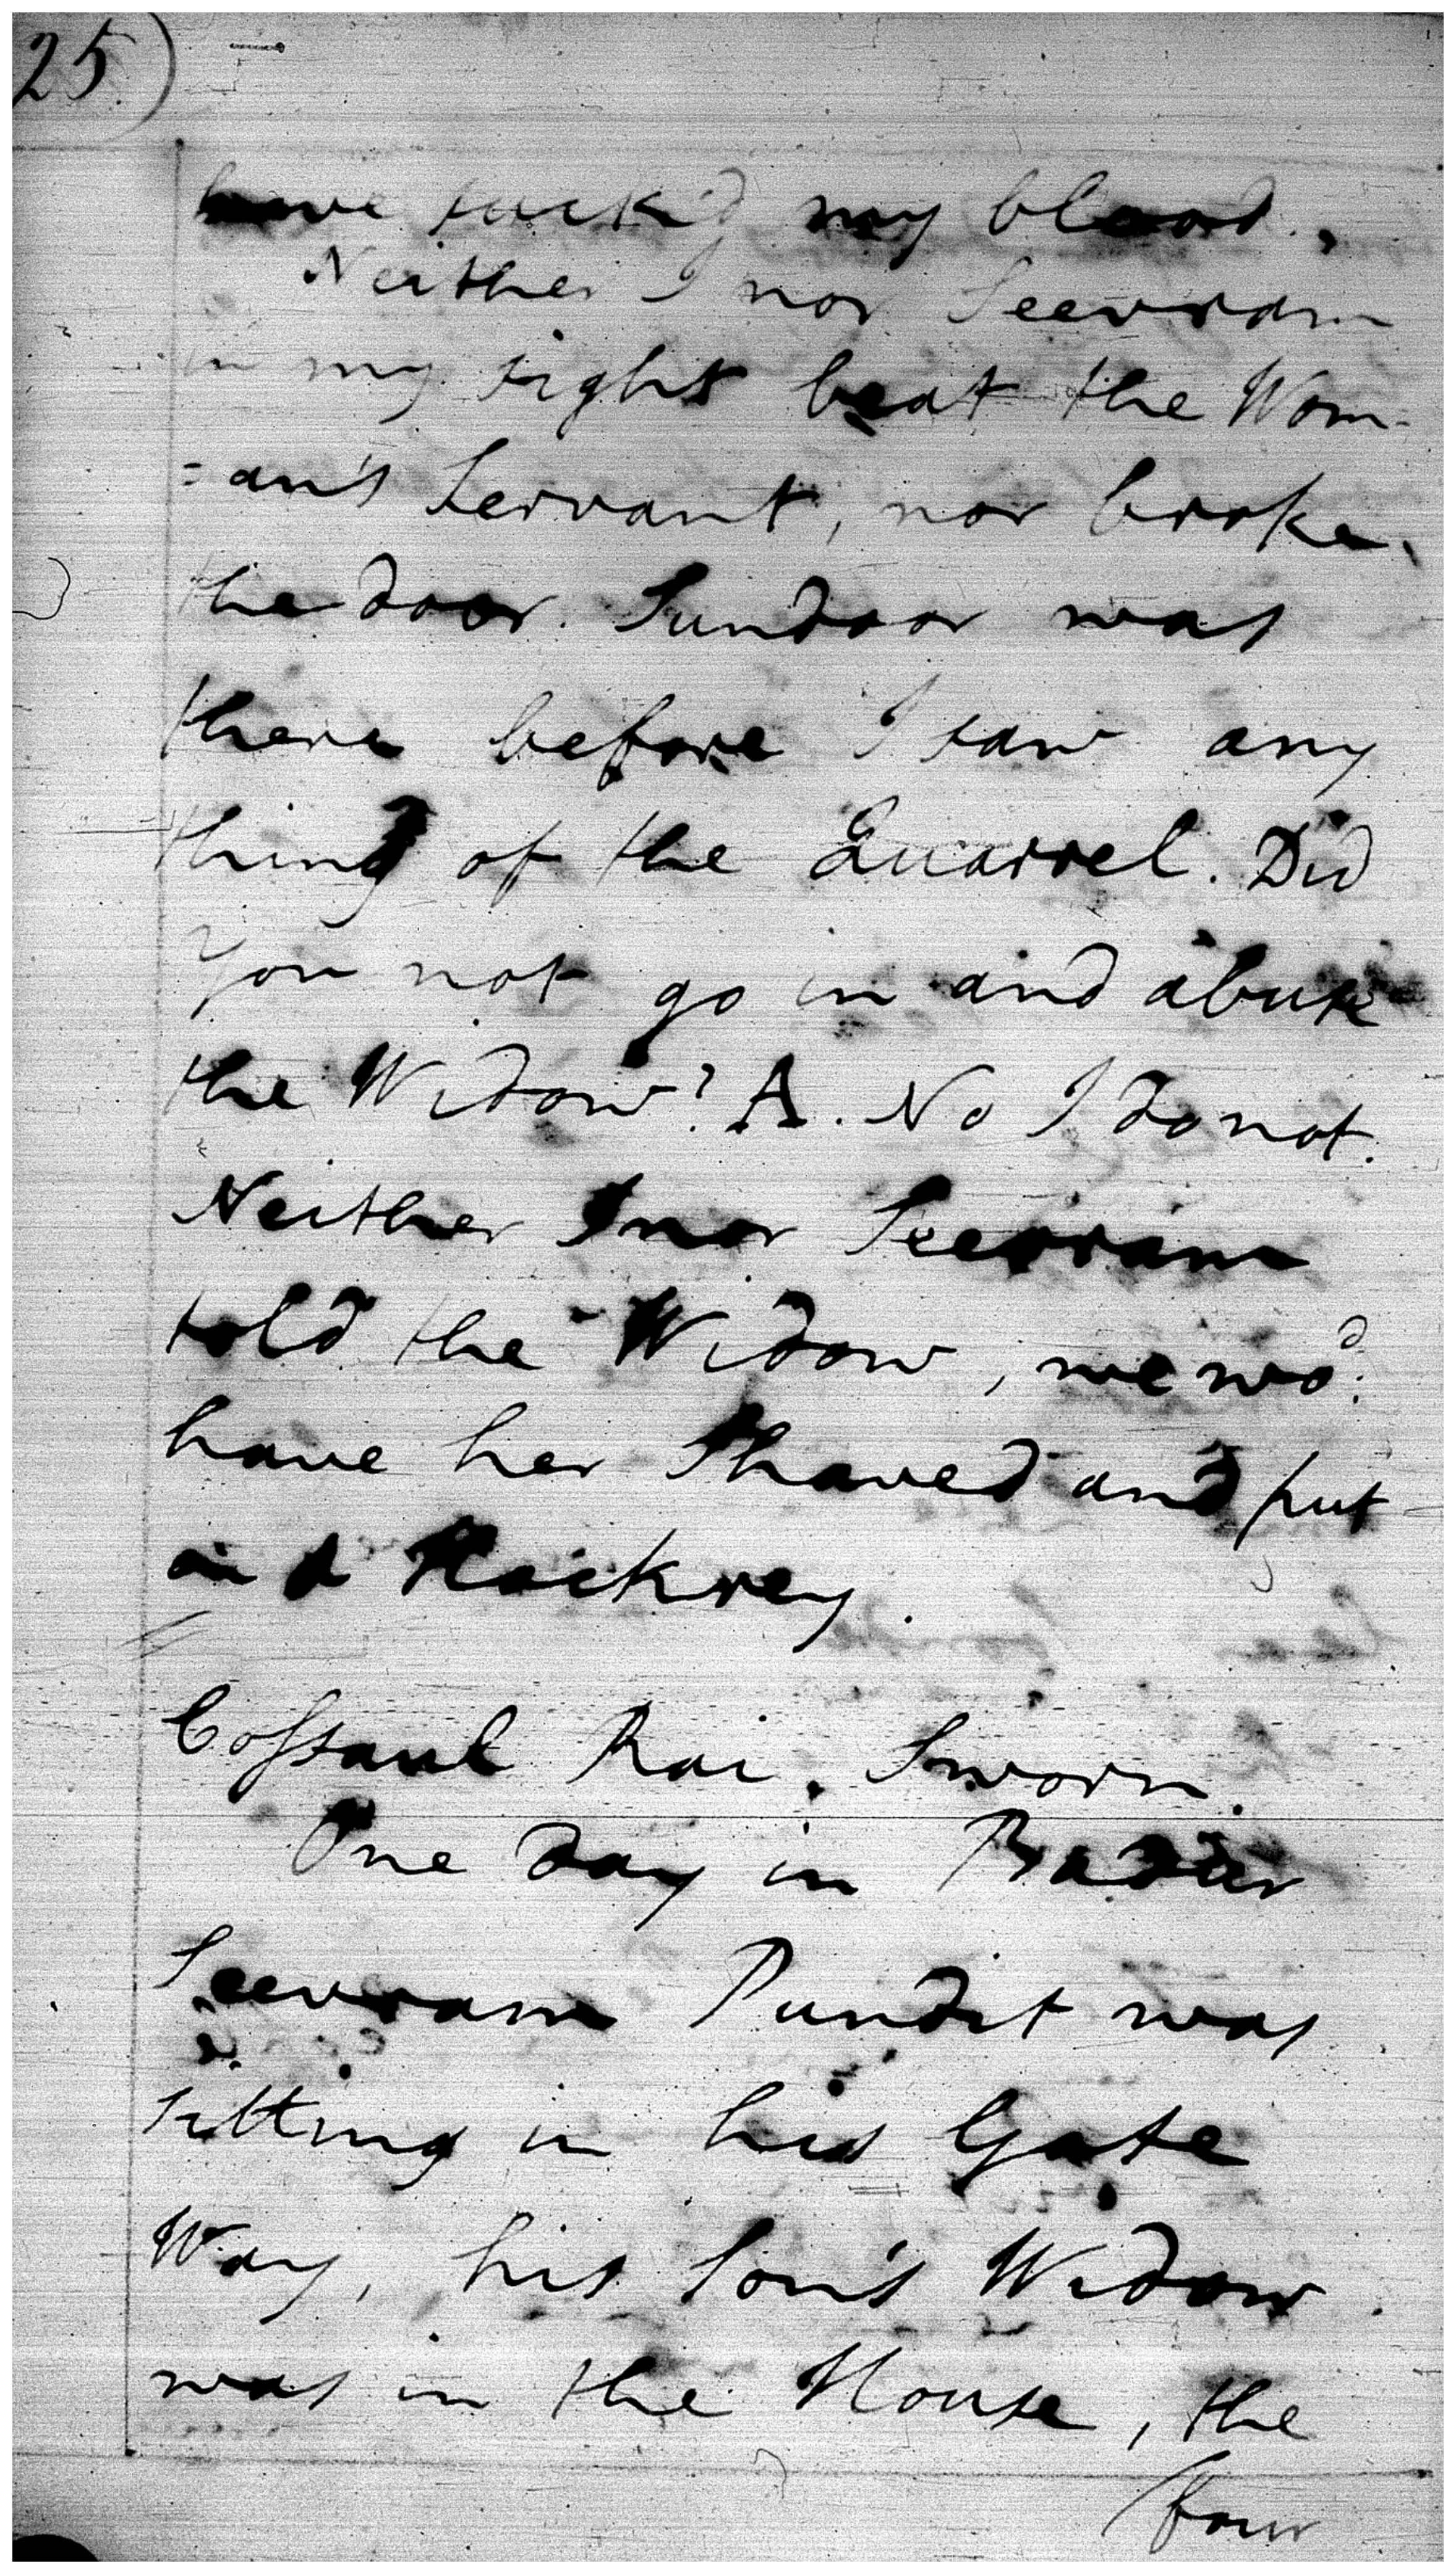 25)
have suck'd my blood.
Neither I nor Seevram
in my sight beat the Wom-
=an's Servant, nor broke
the door. Sundoor was
there before I saw any
thing of the Quarrel. Did
you not go in and abuse
the Widow? A. No I do not.
Neither I nor Seevram
told the Widow, we wod.
have her Shaved and put
on a Hackrey.
Cossaul Rai. Sworn.
One day in Badur
Seevram Pundit was
sitting in his Gate
Way, his Son's Widow
was in the House, the
four